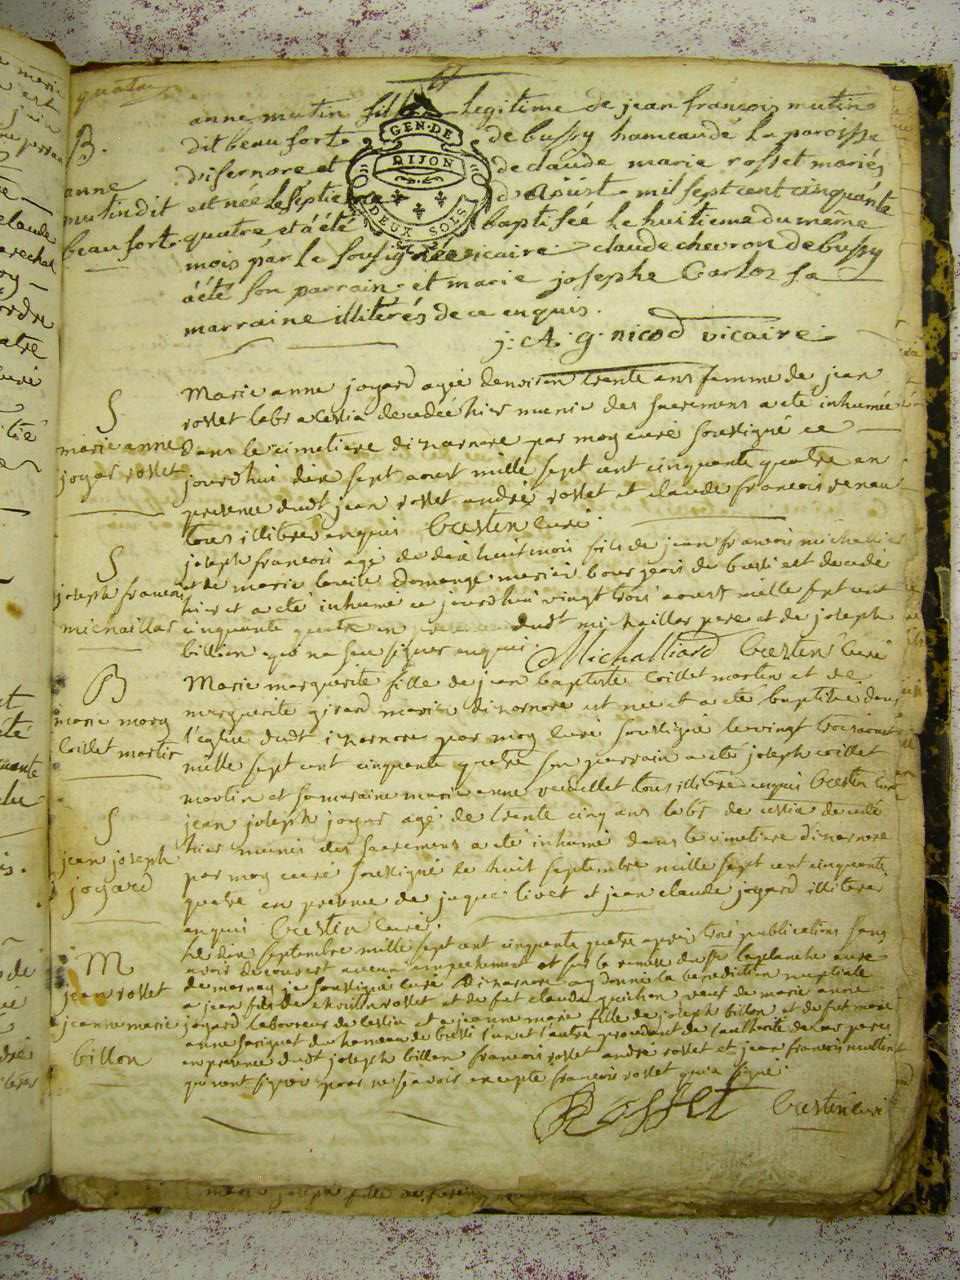 B.
anne
mutin dit
beaufort
GEN. DE
DIJON
DEUX SOLS
anne mutin fille legitime de jean françois mutin
dit beaufort de bussy hameau de la paroisse
disernore et de claude marie rosset mariés
est née le septie d'Aoust mil sept cent cinquante
quatre et a été baptisée le huitieme du même
mois par le soussigné vicaire claude chevron de bussy
a été son parrain et marie josephe Carlos sa
marraine illiterés de ce enquis.
j: A. g. nicod vicaire
S
marie anne
joyar rosset
Marie anne joyard agée denviron trente ans femme de jean
rosset labr a cessia decedée hier munie des sacremens a eté inhumée
dans le cimetiere dizarnore par moy curé soussigné ce
jourdhui dix sept aout mille sept cent cinquante quatre en
presence dudt jean rosset andré rosset et claude francois renau
tous illiteres enquis Crestin curé.
S
joseph francois
michaillar
joseph francois agé de dix huit mois fils de jean francois
et de marie domange mariéi bourgeois de est decedé
hier et a eté inhumé ce jourdhui vingt trois aoust mille sept cent
cinquante quatre en presence dudt michaillar pere et de joseph
billion qui na sceu signer enquis. Michalliard Crestin curé
B
marie marg
Coillet martin
Marie marguerite fille de jean baptiste Coillet martin et de
marguerite girard mariéi dizarnore est née et a eté baptisée dans
l'eglise dudt izarnore par moy curé soussigné le vingt trois aoust
mille sept cent cinquante quatre son parrain a eté joseph coillet
martin et sa maraine marie anne verdellet tous illiteres enquis Crestin curé
S
jean joseph
joyard
jean joseph joyard agé de trente cinq ans labr de cessia decedé
hier munis des sacremens a eté inhumé dans le cimetiere dizarnore
par moy curé soussigné le huit septembre mille sept cent cinquante
quatre en presence de jaque livet et jean claude joyard illiteres
enquis Crestin curé.
M
jean rosset
jeanne marie
billon
Le dix septembre mille sept cent cinquante quatre apres trois publications sans
avoir decouvert aucun empechement et sur la remise du sr laplanche curé
de mornay je soussigné curé dizarnore ay donné la benediction nuptiale
a jean fils de rosset et de fut claude et de marie anne
joyard laboureur de Cessia et a jeanne marie fille de joseph billon et de fut marie
anne du hameau de l'un et l'autre procedant de l'authorité de leur peres
en presence dudt joseph billon francois rosset andré rosset et jean francois mutin
qui n'ont signés pour ne scavoir excepté francois rosset qui a signé.
Rosset Crestin curé